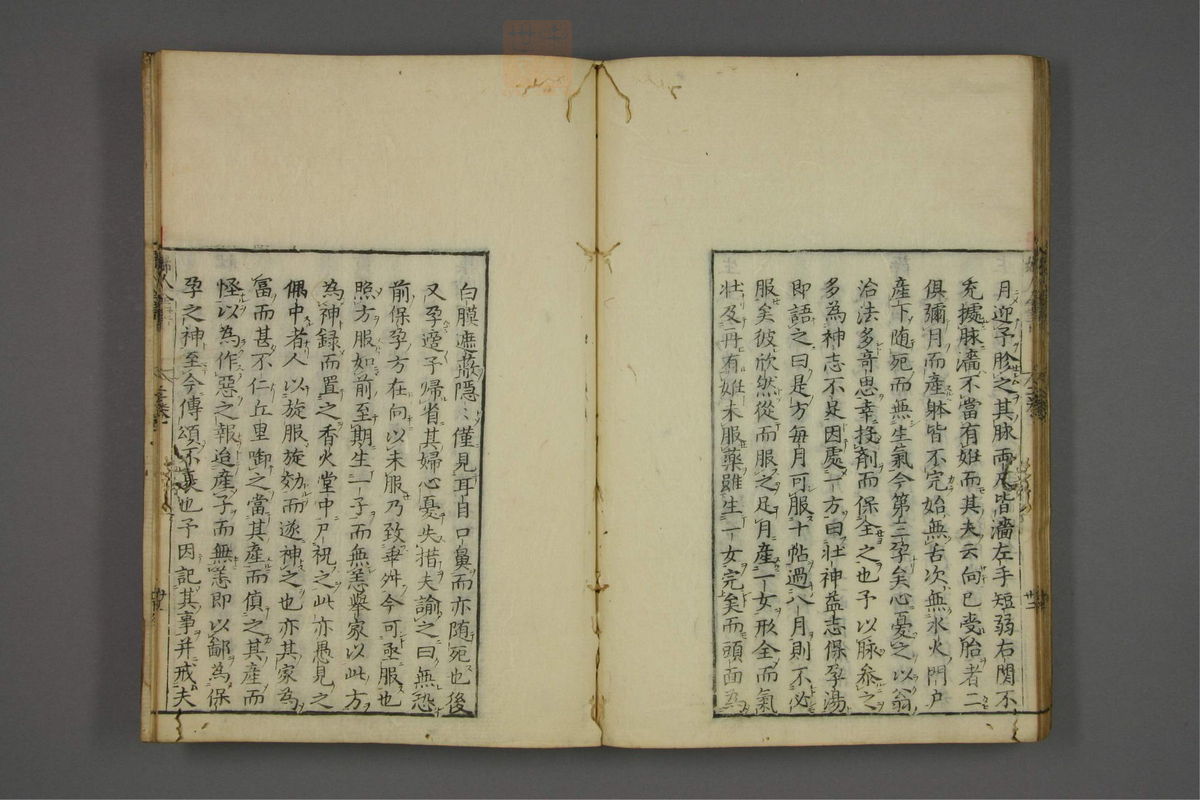 月迎予胗之其脉兩尺皆濇左手短弱右関不
充據脉濇不當有姙而其夫云向已受胎者二
俱彌月而産躰皆不完始無古次無水火門户
産下随死而無生氣今第三孕矣心憂之以翁
治法多奇思幸投劑而保全之也予以脉叅之
多為神志不足因處一方曰壮神益志保孕湯
即語之曰是方每月可服十帖過八月則不必
服矣彼欣然從而服之足月産一女形全而氣
壮及再有姙未服藥雖生一女完矣而頭面為
白膜遮蔽隠〻僅見耳目口鼻而亦随死也後
又孕邉子歸省其婦心憂失措夫諭之曰無恐
前保孕方在向以未服乃致乖舛今可亟服也
照方服如前至期生一子而無恙舉家以此方
為神録而置之香火堂中尸祝之此亦愚見之
偶中者人以旋服旋効而遂神之也亦其家為
富而甚不仁丘里啣之當其産而偵之其産而
怪以為作惡之報迨産子而無恙即以鄙為保
孕之神至今傳頌不衰也予因記其事并戒夫